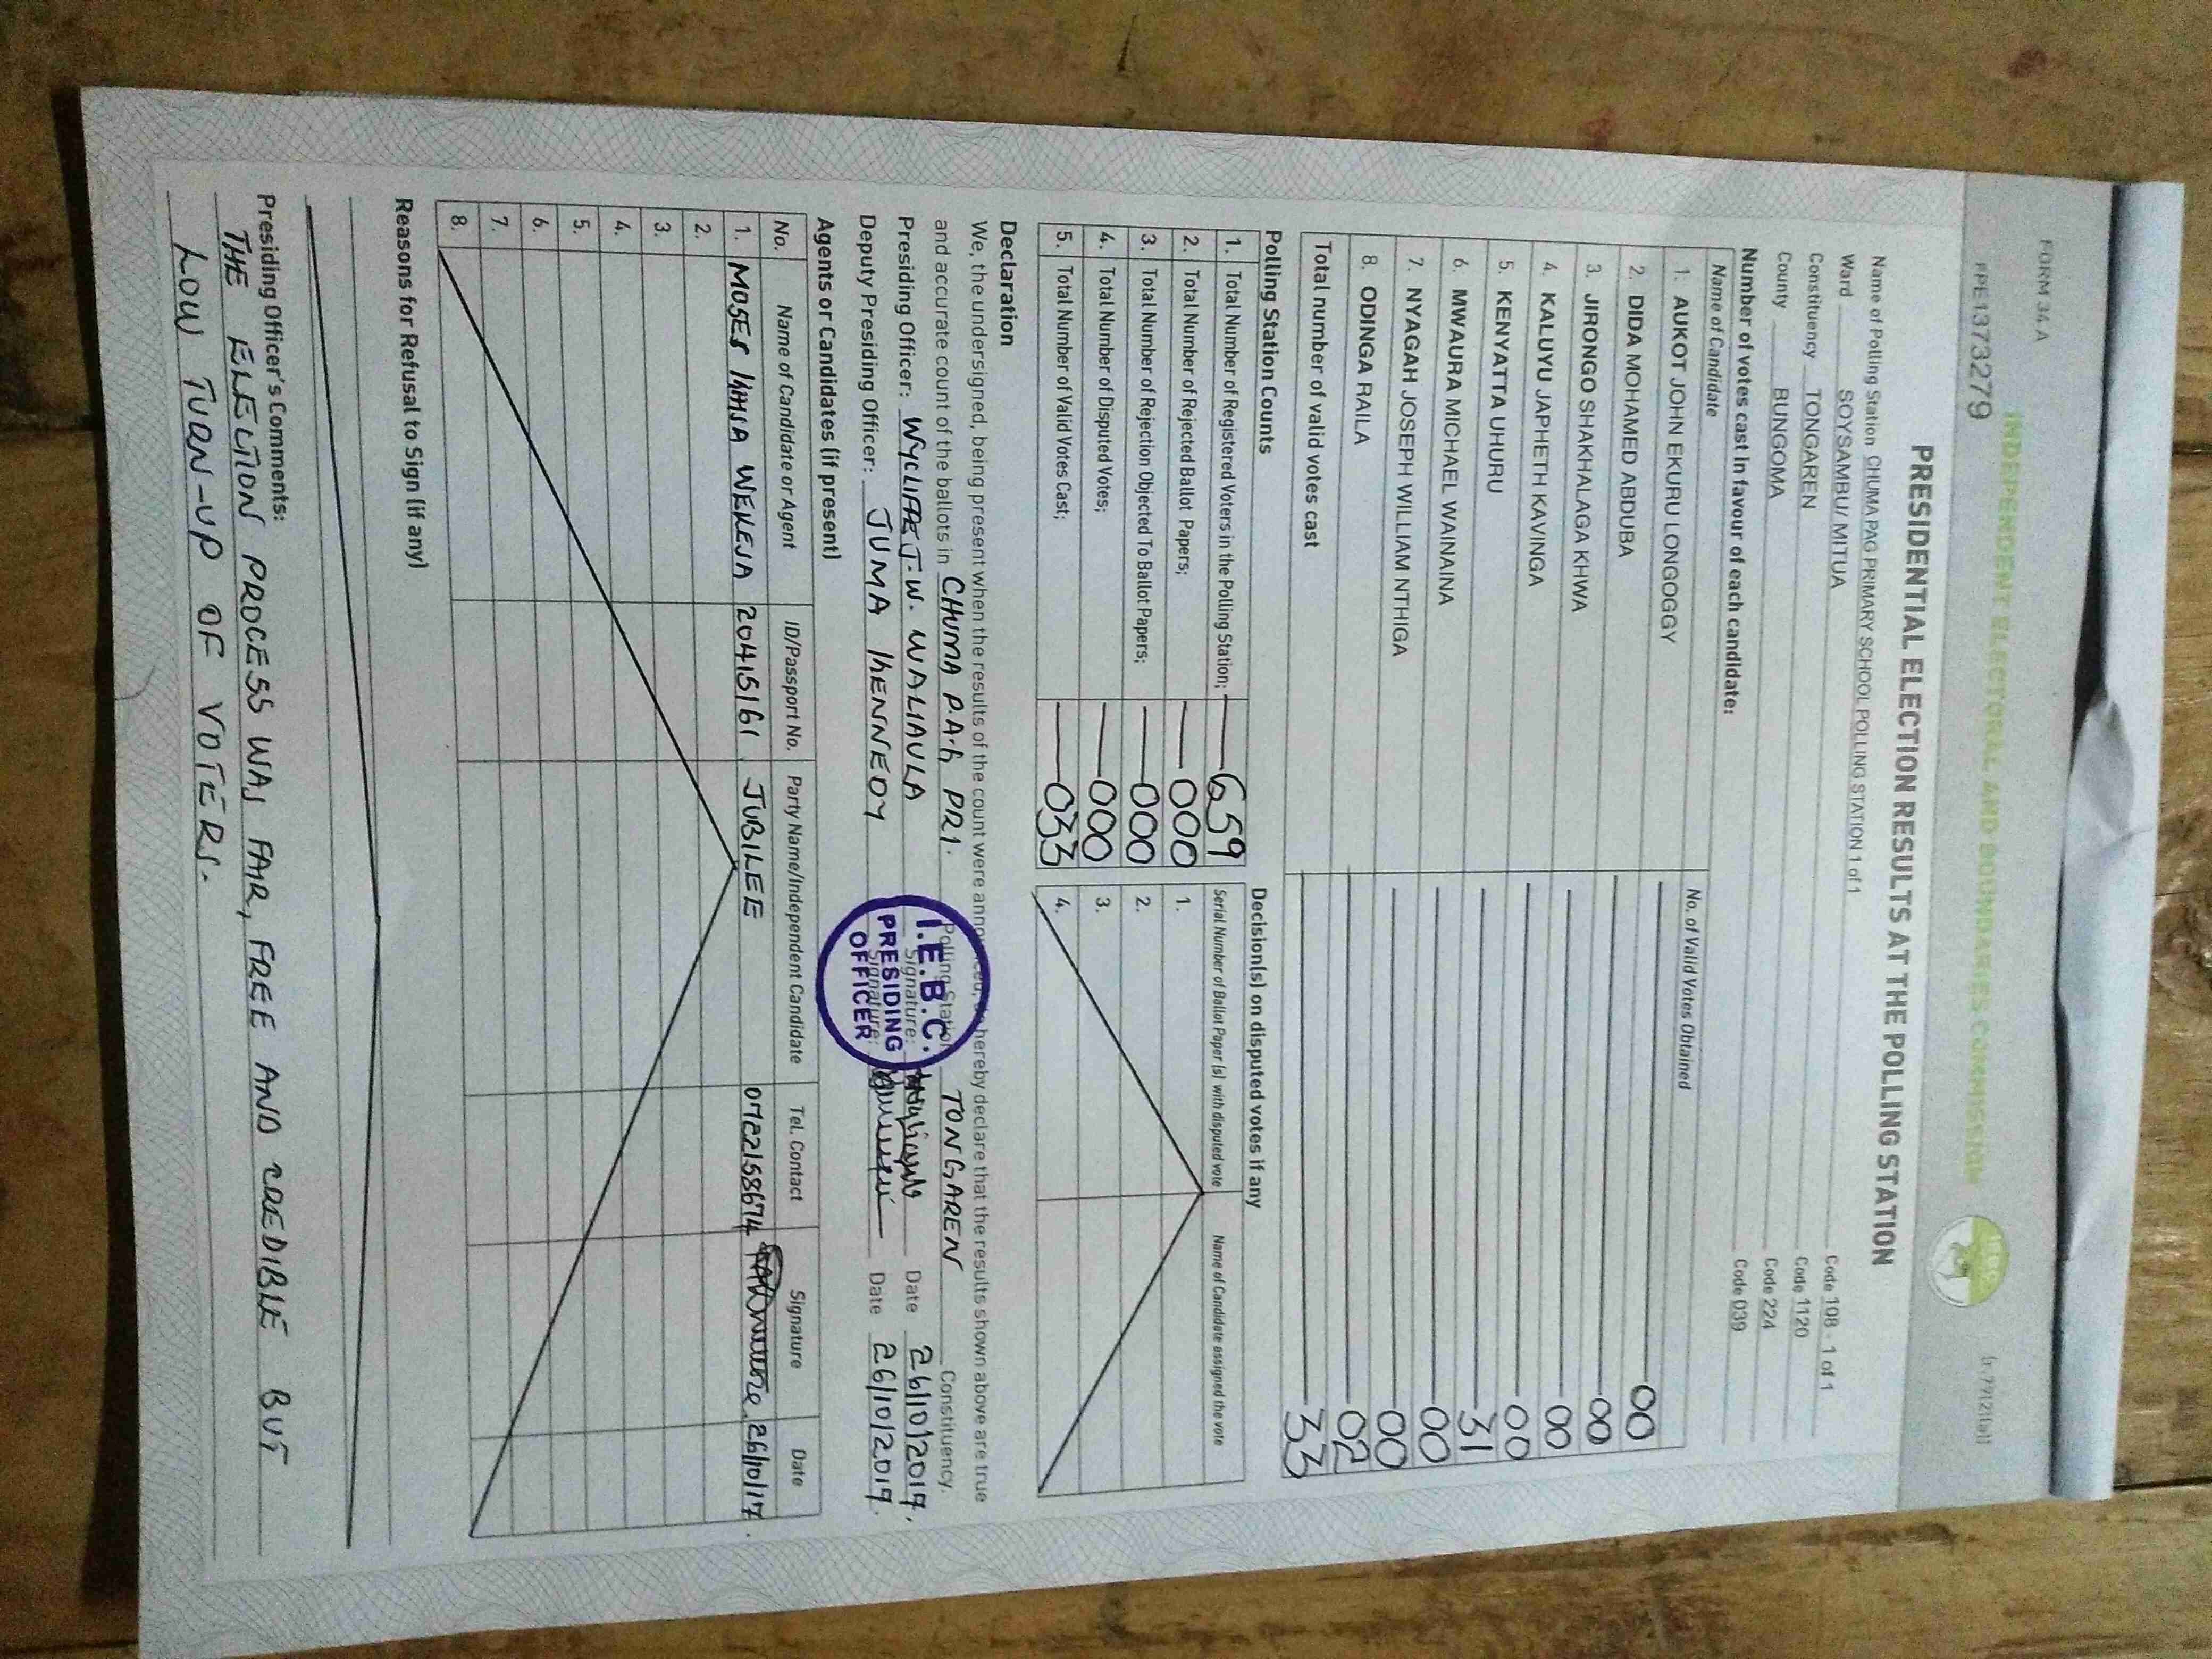 FORM 34 A
INDEPENDENT ELECTORAL AND BOUNDARIES COMMISSION
PPE1373279
PRESIDENTIAL ELECTION RESULTS AT THE POLLING STATION
Name of Polling Station CHUMA PAG PRIMARY SCHOOL POLLING STATION 1 of 1 Code 108 - 1 of 1
Ward SOYSAMBU/ MITUA Code 1120
Constituency TONGAREN Code 224
County BUNGOMA Code 039
Number of votes cast in favour of each candidate:
Name of Candidate No. of Valid Votes Obtained
1. AUKOT JOHN EKURU LONGOGGY 00
2. DIDA MOHAMED ABDUBA 00
3. JIRONGO SHAKHALAGA KHWA 00
4. KALUYU JAPHETH KAVINGA 00
5. KENYATTA UHURU 31
6. MWAURA MICHAEL WAINAINA 00
7. NYAGAH JOSEPH WILLIAM NTHIGA 00
8. ODINGA RAILA 02
Total number of valid votes cast 33
Polling Station Counts
1. Total Number of Registered Voters in the Polling Station; 659
2. Total Number of Rejected Ballot Papers; 000
3. Total Number of Rejection Objected To Ballot Papers; 000
4. Total Number of Disputed Votes; 000
5. Total Number of Valid Votes Cast; 033
Decision(s) on disputed votes if any
Serial Number of Ballot Paper (s) with disputed vote Name of Candidate assigned the vote
1.
2.
3.
4.
Declaration
We, the undersigned, being present when the results of the count were announced, do hereby declare that the results shown above are true
and accurate count of the ballots in CHUMA P.A.G PRI. Polling Station TONGAREN Constituency.
Presiding Officer: WYCLIFFE J.W. WALIAULA Signature: Date 26/10/2017.
Deputy Presiding Officer: JUMA KENNEDY Signature: Date 26/10/2017.
I.E.B.C.
PRESIDING
OFFICER
Agents or Candidates (if present)
No. Name of Candidate or Agent ID/Passport No. Party Name/Independent Candidate Tel. Contact Signature Date
1. MOSES WEKESA 20415161 JUBILEE 0722158674 26/10/17.
2.
3.
4.
5.
6.
7.
8.
Reasons for Refusal to Sign (if any)
Presiding Officer's Comments:
THE ELECTION PROCESS WAS FAIR, FREE AND CREDIBLE BUT
LOW TURN-UP OF VOTERS.